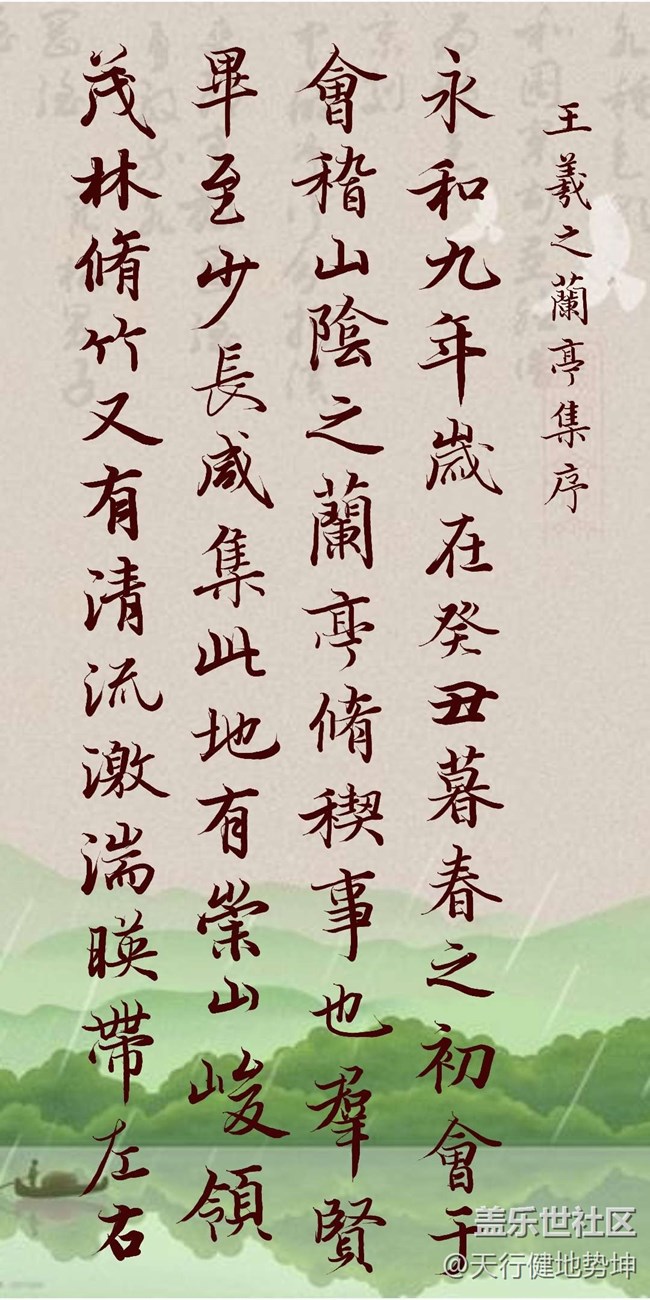 王羲之蘭亭集序
永和九年歲在癸丑暮春之初會于
會稽山陰之蘭亭脩稧事也羣賢
畢至少長咸集此地有崇山峻領
茂林脩竹又有清流激湍暎帶左右
盖乐世社区
@天行健地势坤